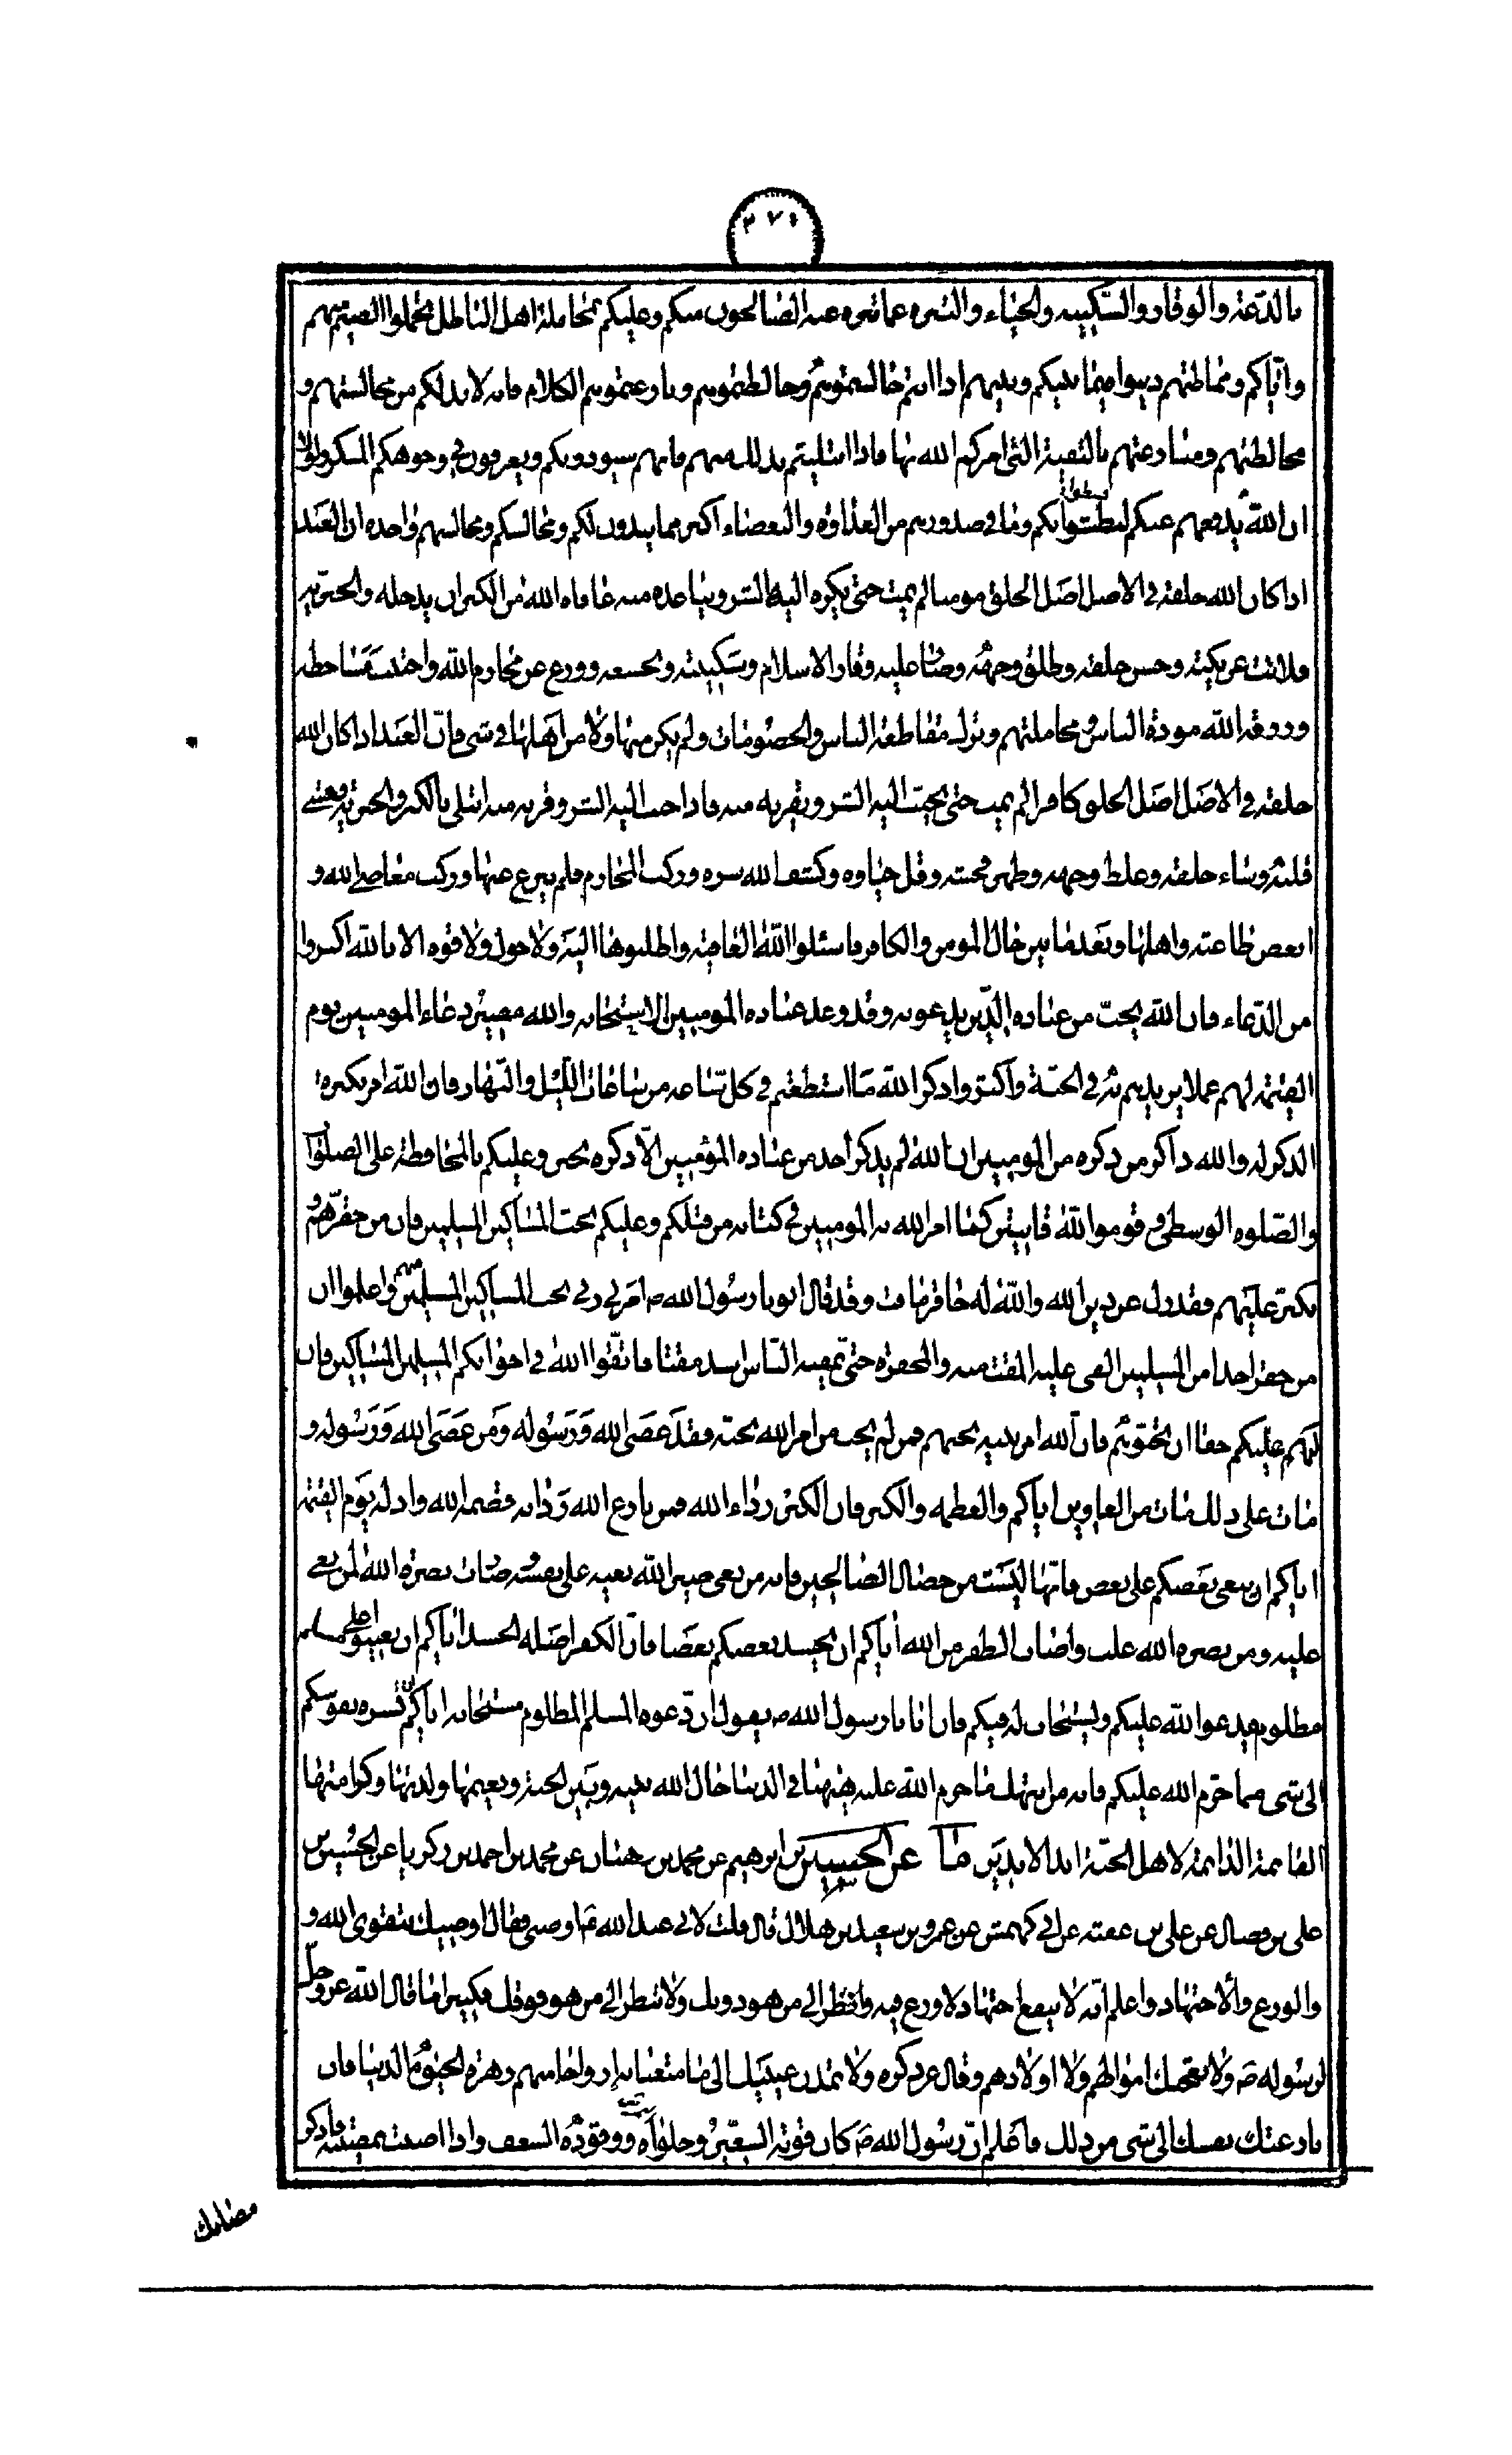 ٢٧١
بالدعة والوقار والسكينة والحياء والتنزه عما تنزه عنه الصالحون منكم وعليكم بمجاملة اهل الباطل تحملوا الضيم منهم
واياكم ومماظتهم دينوا فيما بينكم وبينهم اذا انتم جالستموهم وخالطتموهم ونازعتموهم الكلام فانه لابد لكم من مجالستهم و
مخالطتهم ومنازعتهم بالتقية التى امركم الله بها فاذا ابتليتم بذلك منهم فانهم سيوذونكم ويعرفون فى وجوهكم المنكر ولولا
ان الله يدفعهم عنكم لسطوا بكم وما فى صدورهم من العداوة والبغضاء اكثر مما يبدون لكم ومجالسكم ومجالسهم واحدة ان العبد
اذا كان الله خلقه فى الاصل اصل الخلق مومنا لم يمت حتى يكره اليه الشر ويباعده منه عافاه الله من الكبر ان يدخله والجبرية
فلانت عريكته وحسن خلقه وطلق وجهه وصار عليه وقار الاسلام وسكينته وتخشعه وورع عن محارم الله واجتنب مساخطه
ورزقه الله مودة الناس ومجاملتهم وترك مقاطعة الناس والخصومات ولم يكن منها ولا من اهلها فى شى وان العبد اذا كان الله
خلقه فى الاصل اصل الخلق كافرا لم يمت حتى يحبب اليه الشر ويقربه منه فاذا حبب اليه الشر وقربه منه ابتلى بالكبر والجبرية فقسى
قلبه وساء خلقه وغلظ وجهه وظهر فحشه وقل حياوه وكشف الله ستره وركب المحارم فلم ينزع عنها وركب معاصى الله و
ابغض طاعته واهلها وبعد ما بين حال المومن والكافر فاسئلوا الله العافية واطلبوها اليه ولا حول ولا قوة الا بالله اكثروا
من الدعاء فان الله يحب من عباده الذين يدعونه وقد وعد عباده المومنين الاستجابة والله مصير دعاء المومنين يوم
القيمة لهم عملا يزيدهم به فى الجنة واكثروا ذكر الله ما استطعتم فى كل ساعة من ساعات الليل والنهار فان الله امر بكثرة
الذكر له والله ذاكر من ذكره من المومنين ان الله لم يذكره احد من عباده المؤمنين الا ذكره بخير وعليكم بالمحافظة على الصلوات
والصلوة الوسطى وقوموا لله قانتين كما امر الله به المومنين فى كتابه من قبلكم وعليكم بحب المساكين المسلمين فان من حقرهم و
تكبر عليهم فقد زل عن دين الله والله له حاقر ماقت وقد قال ابونا رسول الله ص امرنى ربى بحب المساكين المسلمين منهم واعلموا ان
من حقر احدا من المسلمين القى عليه المقت منه والمحقرة حتى يمقته الناس اشد مقتا فاتقوا الله فى اخوانكم المسلمين المساكين فان
لهم عليكم حقا ان تحبوهم فان الله امر نبيه بحبهم فمن لم يحب من امر الله بحبه فقد عصى الله ورسوله ومن عصى الله ورسوله و
مات على ذلك مات من الغاوين اياكم والعظمة والكبر فان الكبر رداء الله فمن نازع الله رداءه قصمه الله واذله يوم القيمة
اياكم ان يبغى بعضكم على بعض فانها ليست من خصال الصالحين فانه من بغى صير الله بغيه على نفسه وصارت نصرة الله لمن بغى
عليه ومن نصره الله غلب واصاب الظفر من الله اياكم ان يحسد بعضكم بعضا فان الكفر اصله الحسد اياكم ان تعينوا على مسلم
مظلوم فيدعو الله عليكم ويستجاب له فيكم فان ابانا رسول الله ص يقول ان دعوة المسلم المظلوم مستجابة اياكم ان تشره نفوسكم
الى شى مما حرم الله عليكم فانه من انتهك ما حرم الله عليه هيهنا فى الدنيا حال الله بينه وبين الجنة ونعيمها ولذتها وكرامتها
القائمة الدائمة لاهل الجنة ابد الابدين ما عن الحسين بن ابرهيم عن محمد بن وهبان عن محمد بن احمد بن زكريا عن الحسين بن
على بن فضال عن على بن عقبة عن ابى كهمش عن عمرو بن سعيد بن هلال قال قلت لابى عبد الله ع اوصنى فقال اوصيك بتقوى الله و
والورع والاجتهاد واعلم انه لا ينفع اجتهاد لا ورع فيه وانظر الى من هو دونك ولا تنظر الى من هو فوقك فكثيرا ما قال الله عز وجل
لرسوله ص ولا تعجبك اموالهم ولا اولادهم وقال عز ذكره ولا تمدن عينيك الى ما متعنا به ازواجا منهم زهرة الحيوة الدنيا فان
نازعتك نفسك الى شى من ذلك فاعلم ان رسول الله ص كان قوته الشعير وحلواه ووقوده السعف واذا اصبت بمصيبة فاذكر
مصابك